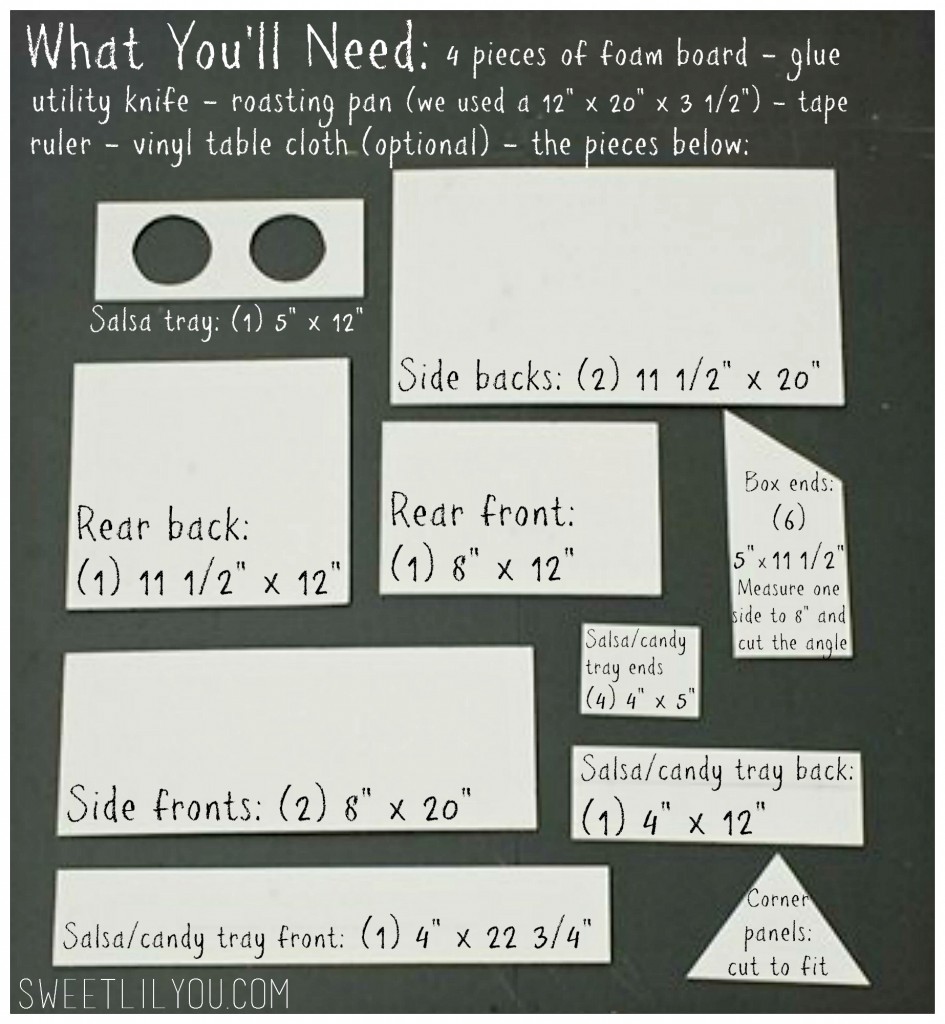 What You'll Need: 4 pieces of foam board – glue
utility knife – roasting pan (we used a 12" x 20" x 3 1/2") – tape
ruler – vinyl table cloth (optional) – the pieces below:
Salsa tray: (1) 5" x 12"
Side backs: (2) 11 1/2" x 20"
Rear back:
(1) 11 1/2" x 12"
Rear front:
(1) 8" x 12"
Box ends:
(6)
5" x 11 1/2"
Measure one
side to 8" and
cut the angle
Salsa/candy
tray ends
(4) 4" x 5"
Side fronts: (2) 8" x 20"
Salsa/candy tray back:
(1) 4" x 12"
Salsa/candy tray front: (1) 4" x 22 3/4"
Corner
panels:
cut to fit
SWEETLILYOU.COM